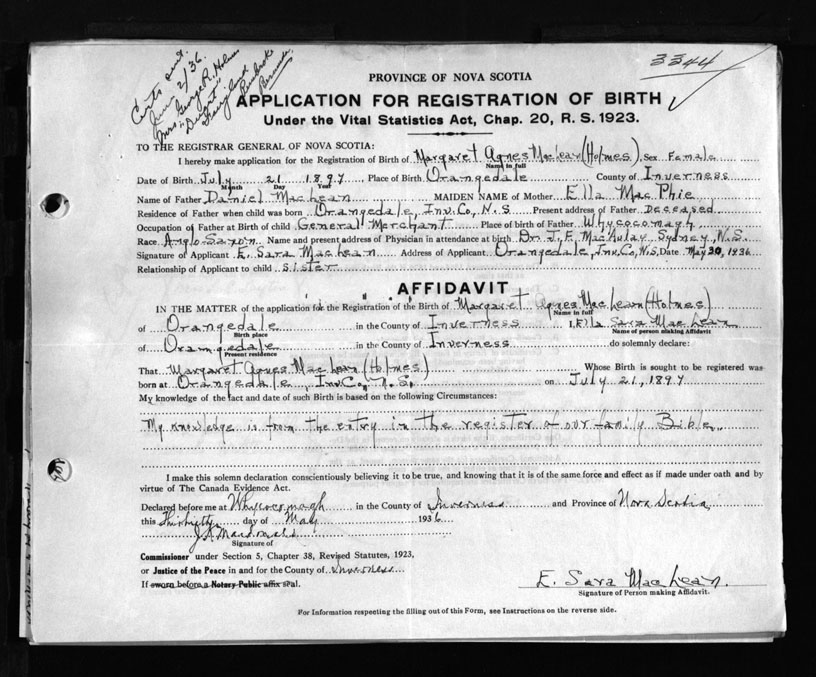 Certs sent.
June 2/36.
Mrs George R. Holmes
"Fairyland
Pembroke
Bermuda.
3344
PROVINCE OF NOVA SCOTIA
APPLICATION FOR REGISTRATION OF BIRTH
Under the Vital Statistics Act, Chap. 20, R. S. 1923.
TO THE REGISTRAR GENERAL OF NOVA SCOTIA:
I hereby make application for the Registration of Birth of Margaret Agnes MacLean (Holmes). Sex Female
Name in full
Date of Birth July 21 1897 Place of Birth Orangedale County of Inverness
Month Day Year
Name of Father Daniel MacLean MAIDEN NAME of Mother Ella MacPhie
Residence of Father when child was born Orangedale, Inv. Co, N. S Present address of Father Deceased
Occupation of Father at Birth of Child General Merchant Place of birth of Father Whycocomagh
Race Anglo Saxon. Name and present address of Physician in attendance at birth Dr. J. F. MacAulay Sydney, N.S.
Signature of Applicant E. Sara MacLean Address of Applicant Orangedale, Inv. Co, N.S, Date May 30, 1936
Relationship of Applicant to child sister
AFFIDAVIT
IN THE MATTER of the application for the Registration of the Birth of Margaret Agnes MacLean (Holmes)
Name in full
of Orangedale in the County of Inverness I, Ella Sara MacLean
Birth place Name of person making Affidavit
of Orangedale in the County of Inverness do solemnly declare:
Present residence
That Margaret Agnes MacLean (Holmes) Whose Birth is sought to be registered was
born at Orangedale, Inv. Co, N. S. on July 21, 1897
My knowledge of the fact and date of such Birth is based on the following Circumstances:
My knowledge is from the entry in the register of our family Bible.
I make this solemn declaration conscientiously believing it to be true, and knowing that it is of the same force and effect as if made under oath and by
virtue of The Canada Evidence Act.
Declared before me at Whycocomagh in the County of Inverness and Province of Nova Scotia
this Thirtieth day of May 1936
J. A. Macdonald
Signature of
Commissioner under Section 5, Chapter 38, Revised Statutes, 1923,
or Justice of the Peace in and for the County of Inverness
If sworn before a Notary Public affix seal.
E. Sara MacLean.
Signature of Person making Affidavit.
For Information respecting the filling out of this Form, see Instructions on the reverse side.